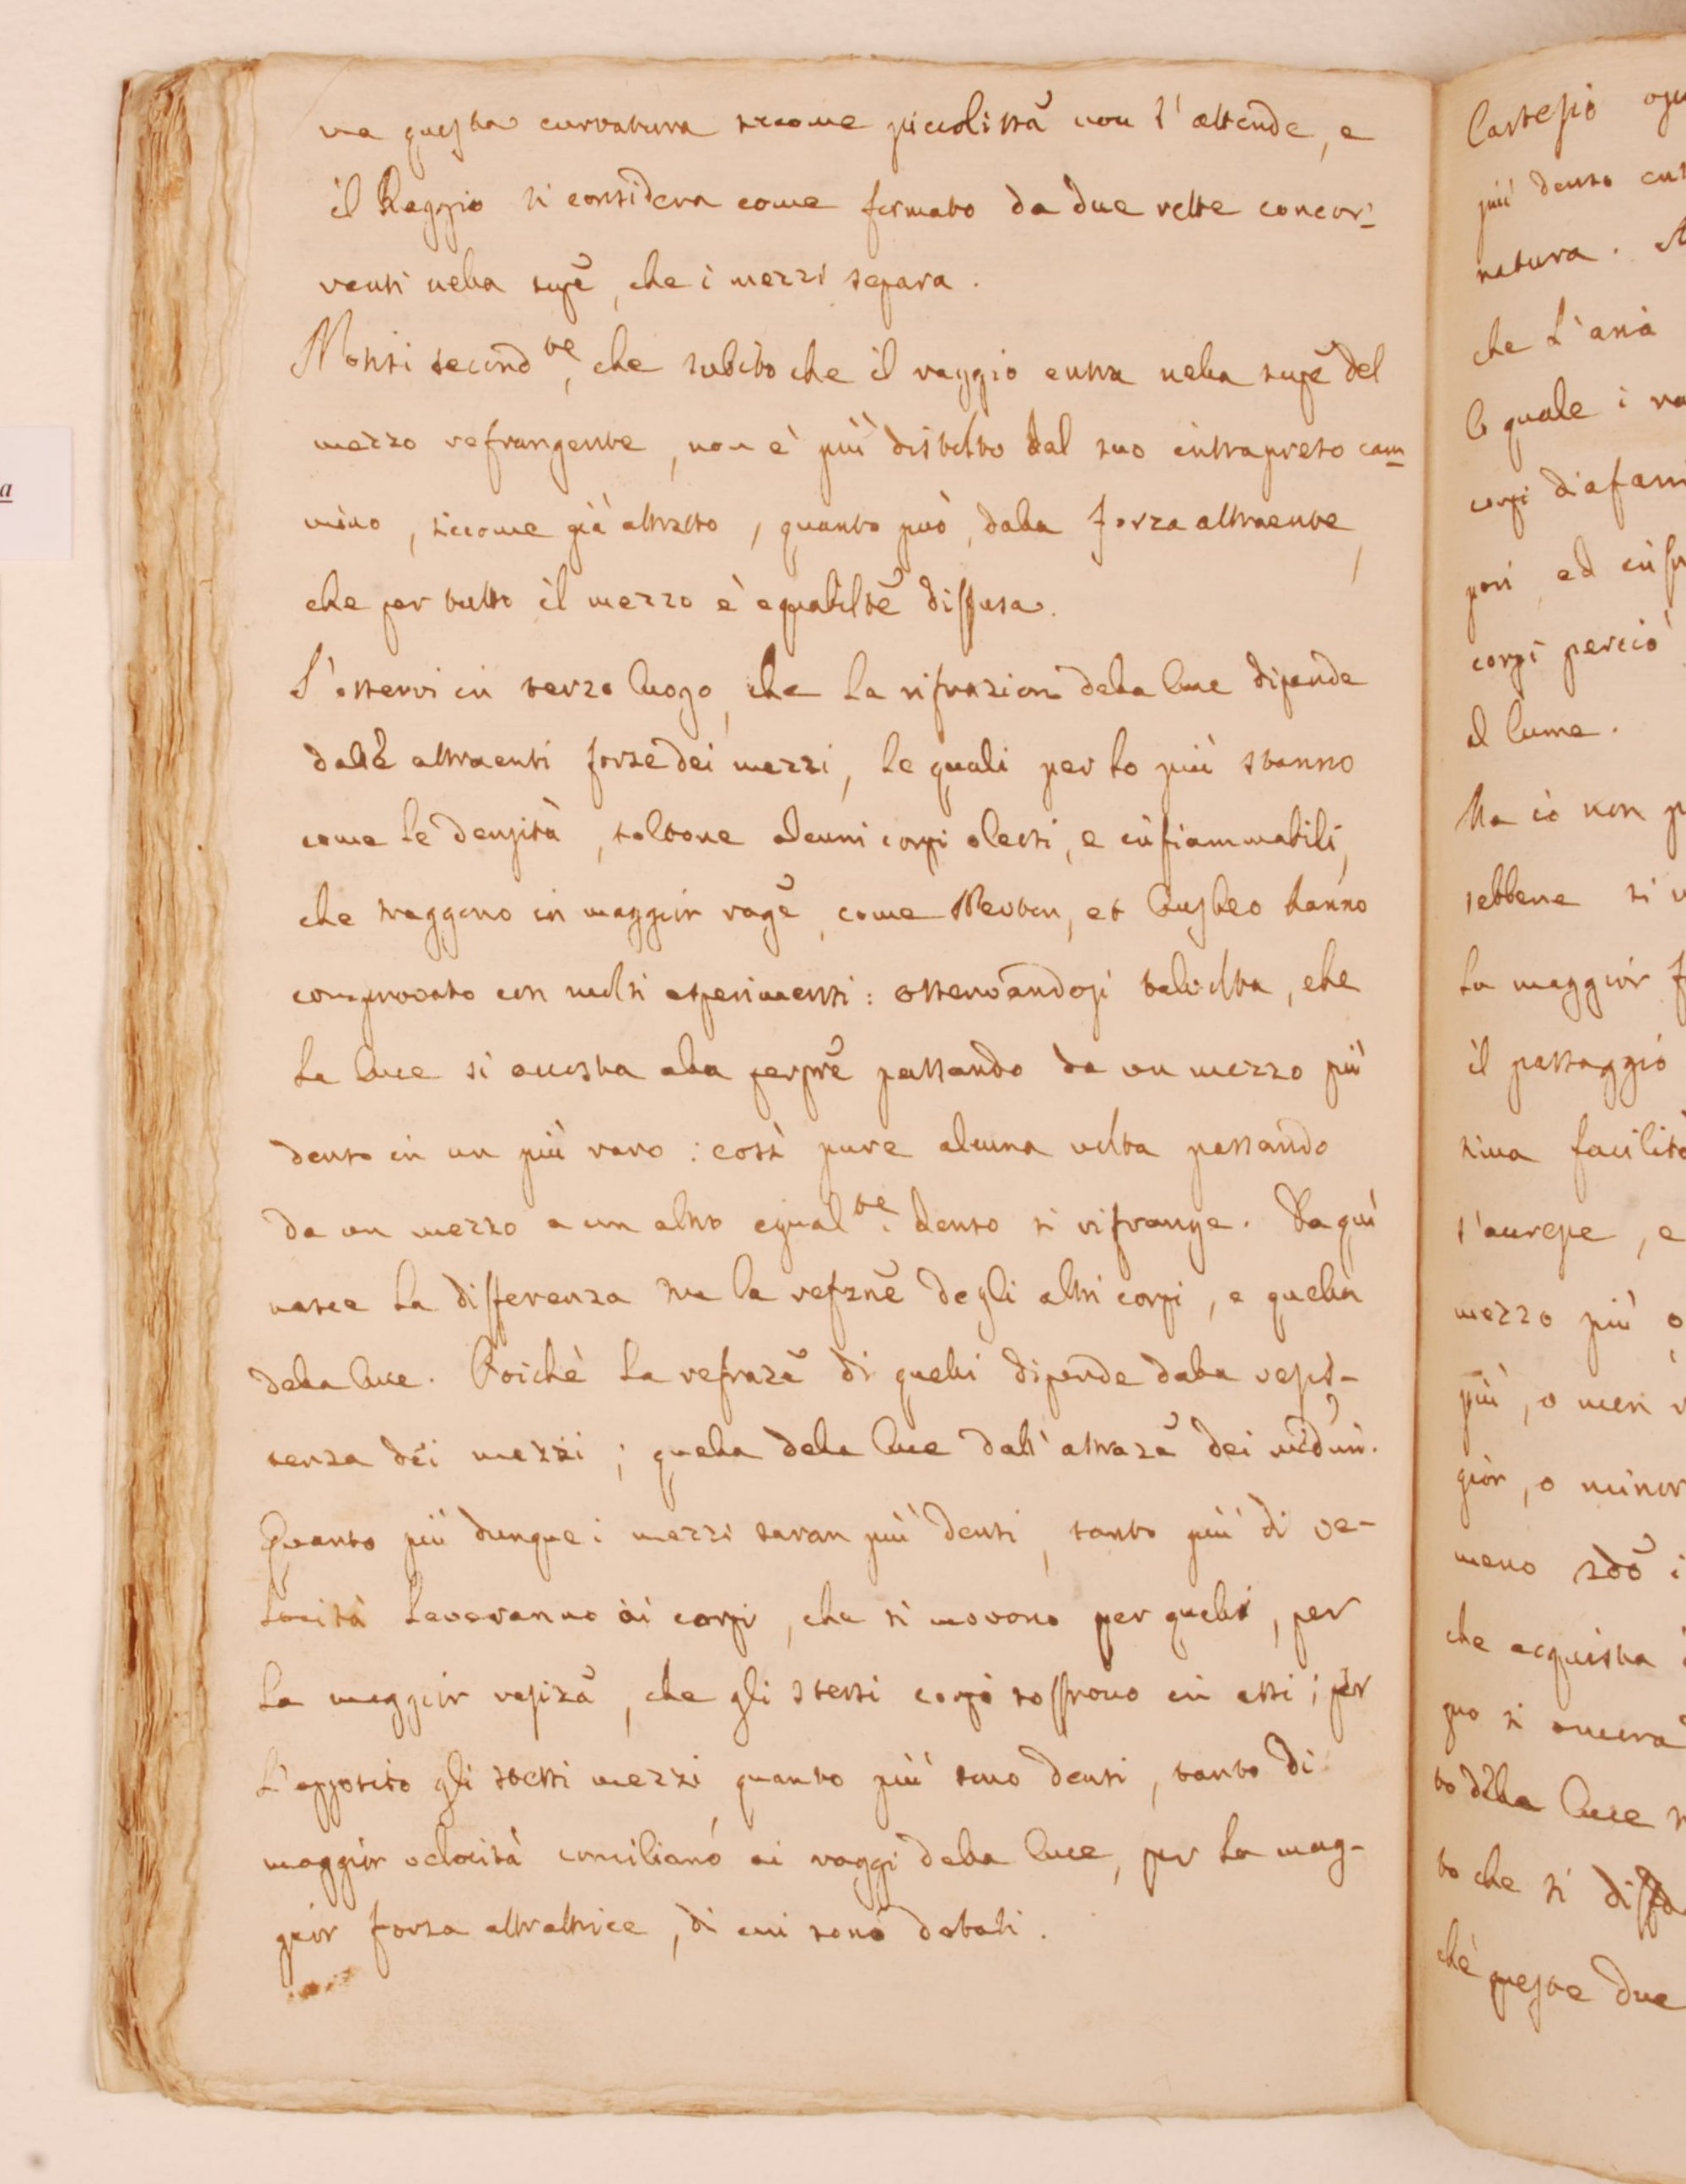 ma questa curvatura siccome piccolissã non s'attende, e
il Raggio si considera come formato da due rette concor-
renti nella supẽ, che i mezzi separa.
Notisi second.te, che subito che il raggio entra nella supẽ del
mezzo refrangente, non è più distolto dal suo intrapreso cam-
mino, siccome già attratto, quanto può, dalla forza attraente,
che per tutto il mezzo è equabiltẽ diffusa.
S'osservi in terzo luogo, che la rifrazion della luce dipende
dalle attraenti forze dei mezzi, le quali per lo più stanno
come le densità, toltone alcuni corpi oleosi, e infiammabili,
che traggono in maggior ragẽ, come Newton, et
comprovato con molti esperimenti: osservandosi talvolta, che
la luce si accosta alla perprẽ passando da un mezzo più
denso in un più raro: così pure alcuna volta passando
da un mezzo a un altro egual.te denso si rifrange. Da quì
nasce la differenza tra la refznẽ degli altri corpi, e quella
della luce. Poichè la refrazẽ di quelli dipende dalla resis-
tenza dei mezzi; quella della luce dall'attrazẽ dei
Quanto più dunque i mezzi saran più densi, tanto più di ve-
locità leveranno ai corpi, che si movono per quelli, per
la maggior resizã, che gli stessi corpi soffrono in essi; per
l'opposito gli stessi mezzi quanto più sono densi, tanto di
maggior velocità conciliano ai raggi della luce, per la mag-
gior forza attrattrice, di cui sono dotati.
Cartesio
più denso
natura.
che l'aria
lo quale i
corpi diafani
pori, ed
corpi perciò
il lume.
Ma ciò non
sebbene si
la maggior
il passaggio
sima facilità
mezzo più
più, o men
gior, o minor
meno
che acquista
to della luce
to che si
chè queste due